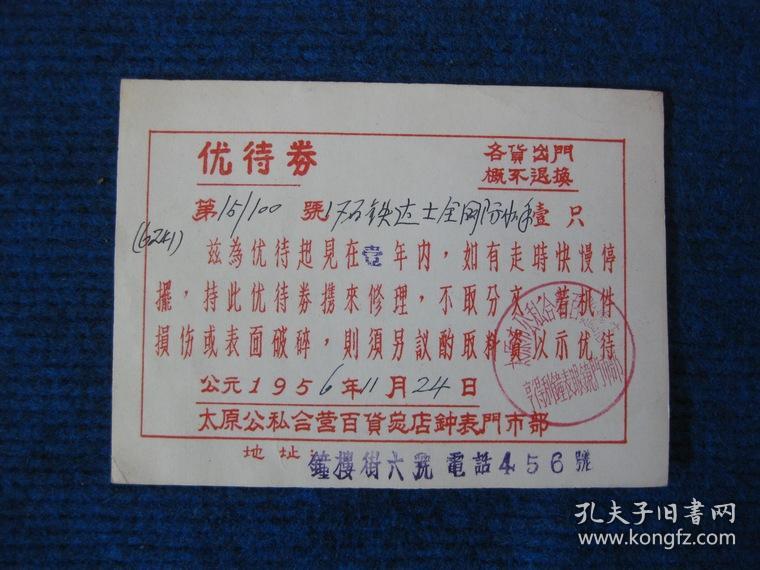 优待券
各貨出門
概不退換
第15/100 號17石铁达士全网防水手壹只
(6241)
兹為优待起見在壹年内，如有走時快慢停
擺，持此优待券携來修理，不取分文，若机件
損伤或表面破碎，則須另議酌取料費以示优待
公元1956年11月24日
太原公私合营百貨总店鈡表門市部
地址：鐘樓街六號 電話456號
孔夫子旧书网
www.kongfz.com